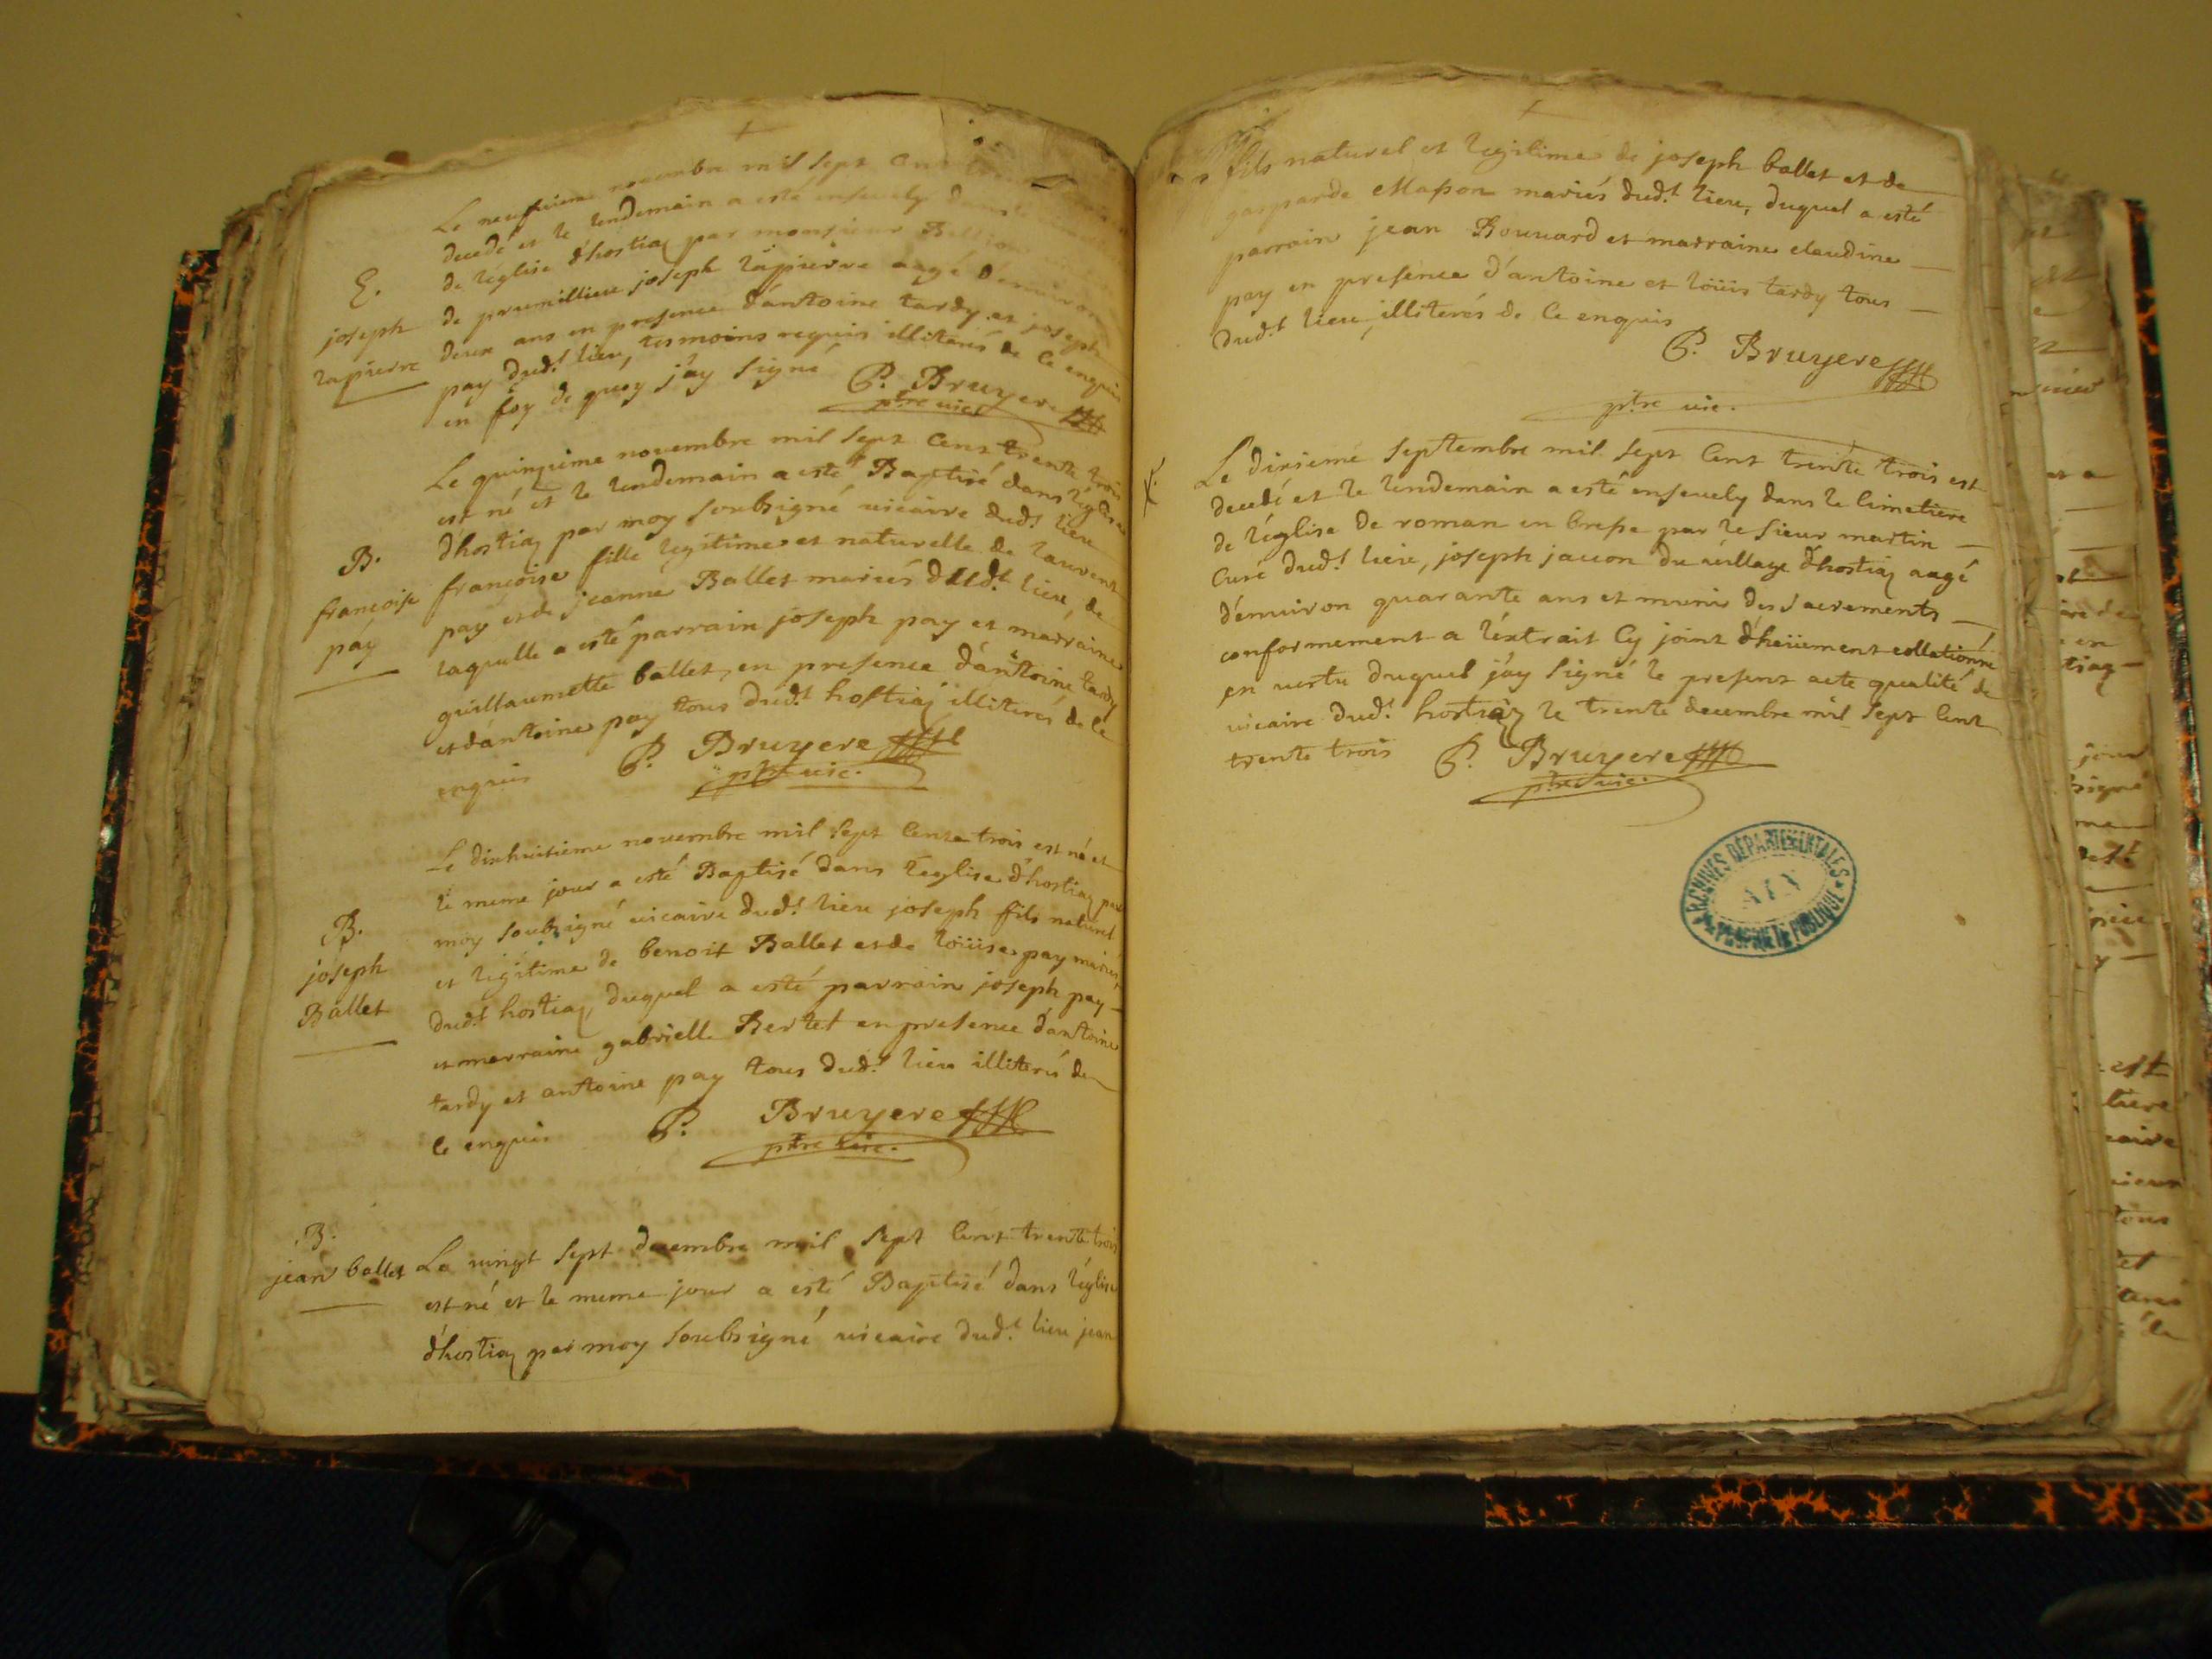 Le neufvieme novembre mil sept cent
decedé et le lendemain a esté ensevely dans le
de l'eglise d'hostiaz par monsieur
E.
de premillieu joseph lapierre aagé d'environ
joseph
lapierre
deux ans en presence d'antoine tardy et joseph
pay dud.t lieu, tesmoins requis illiterés de ce enquis
en foy de quoy j'ay signé P. Bruyere
ptre vic.
Le quinzieme novembre mil sept cent trente trois
est né et le lendemain a esté Baptisé dans l'églises
d'hostiaz par moy soubsigné vicaire dud.t lieu
B.
françoise
pay
françoise fille legitime et naturelle de laurent
pay et de jeanne Ballet mariés dud.t lieu, de
laquelle a esté parrain joseph pay et marraine
guillaumette ballet, en presence d'antoine tardy
et d'antoine pay tous dud.t hostiaz illiterés de ce
enquis P. Bruyere
ptre vic.
Le dixhuitieme novembre mil sept cent trois est né et
le meme jour a esté Baptisé dans l'eglise d'hostiaz par
moy soubsigné vicaire dud.t lieu joseph fils naturel
B.
joseph
Ballet
et legitime de benoit Ballet et de loüise pay mariés
dud.t hostiaz, duquel a esté parrain joseph pay
et marraine gabrielle Bertet en presence d'antoine
tardy et antoine pay tous dud.t lieu illiterés de
ce enquis P. Bruyere
ptre vic.
B.
jean ballet
Le vingt sept decembre mil sept cent trente trois
est né et le meme jour a esté Baptisé dans l'église
d'hostiaz par moy soubsigné vicaire dud.t lieu jean
fils naturel et legitime de joseph ballet et de
gasparde Masson mariés dud.t lieu, duquel a esté
parrain jean Bouvard et marraine claudine
pay en presence d'antoine et loüis tardy tous
dud.t lieu, illiterés de ce enquis
P. Bruyere
ptre vic.
Le dixiemé septembre mil sept cent trente trois est
decedé et le lendemain a esté ensevely dans le cimetiere
de l'église de roman en bresse par le sieur martin
Curé dud.t lieu, joseph juuon du village d'hostiaz aagé
d'environ quarante ans et munis des sacrements
conformement a l'extrait cy joint d'heüement collationné
en vertu duquel j'ay signé le present acte qualité de
vicaire dud.t hostiaz le trente decembre mil sept cent
trente trois P. Bruyere
ptre vic.
ARCHIVES DÉPARTEMENTALES
AIN
PROPRIÉTÉ PUBLIQUE